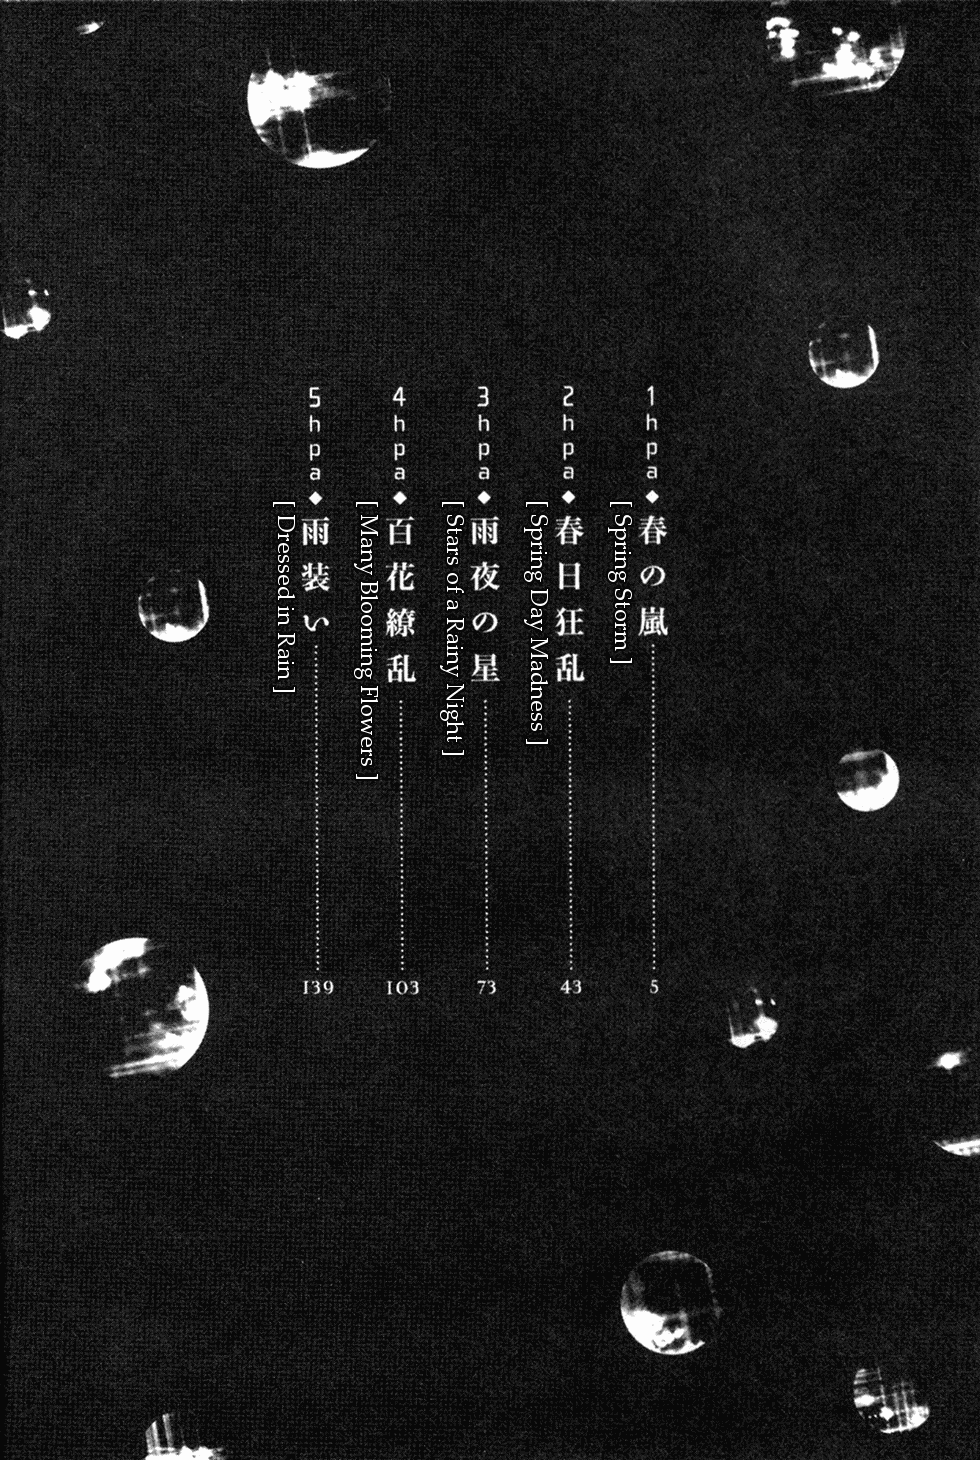 1hpa◆春の嵐 5
[ Spring Storm ]
2hpa◆春日狂乱 43
[ Spring Day Madness ]
3hpa◆雨夜の星 73
[ Stars of a Rainy Night ]
4hpa◆百花繚乱 103
[ Many Blooming Flowers ]
5hpa◆雨装い 139
[ Dressed in Rain ]